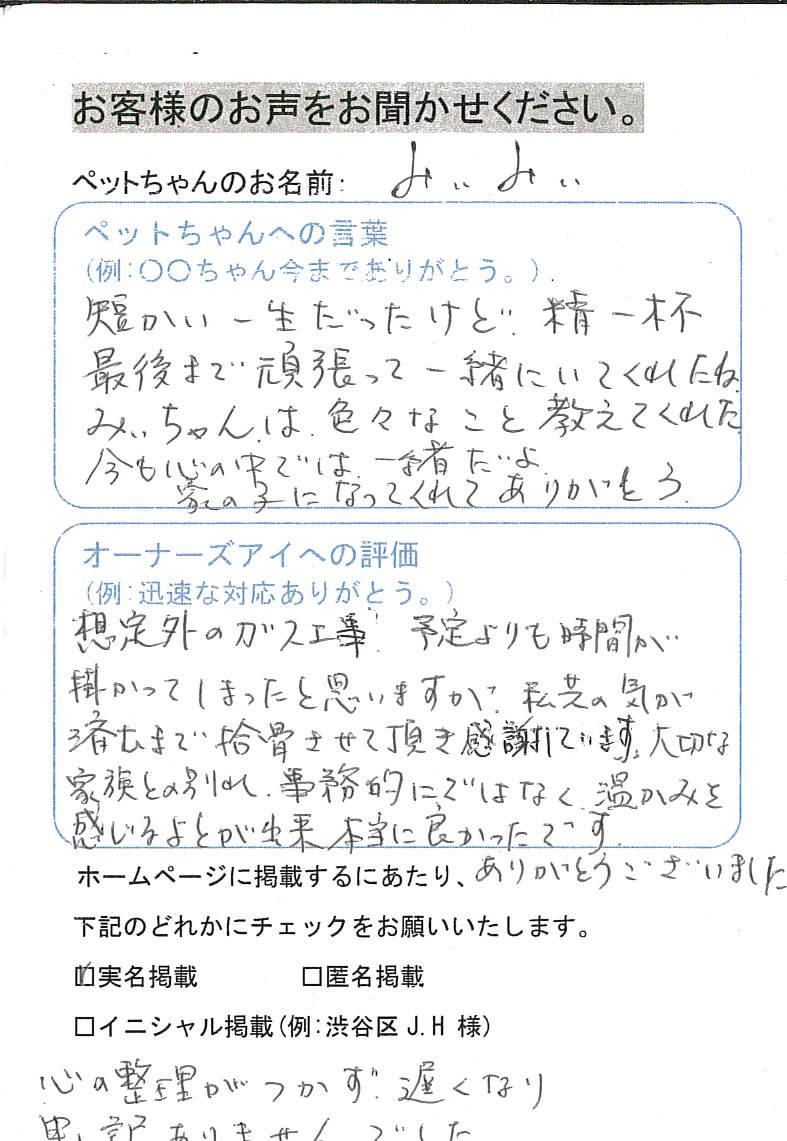 お客様のお声をお聞かせください。
ペットちゃんのお名前: みぃみぃ
ペットちゃんへの言葉
(例:〇〇ちゃん今までありがとう。)
短かい一生だったけど、精一杯
最後まで頑張って一緒にいてくれたね
みぃちゃんは、色々なこと教えてくれた
今も心の中では、一緒だよ
家の子になってくれてありがとう。
オーナーズアイへの評価
(例:迅速な対応ありがとう。)
想定外のガス工事! 予定よりも時間が
掛かってしまったと思いますが、私共の気が
済むまで拾骨させて頂き感謝しています。大切な
家族との別れ、事務的にではなく、温かみを
感じるよとが出来本当に良かったです。
ホームページに掲載するにあたり、ありがとうございました
下記のどれかにチェックをお願いいたします。
☑実名掲載 □匿名掲載
□イニシャル掲載(例:渋谷区 J.H 様)
心の整理がつかず、遅くなり
申し訳ありませんでした